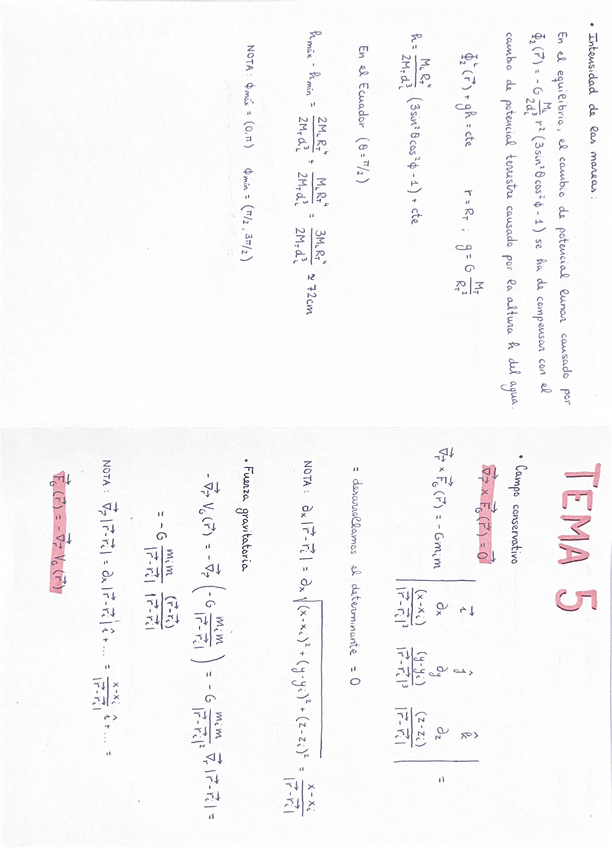 • Intensidad de las mareas:
En el equilibrio, el cambio de potencial lunar causado por
Φ₂(r⃗) = -G M_L/2d_L³ r² (3sin²θcos²ϕ - 1) se ha de compensar con el
cambio de potencial terrestre causado por la altura h del agua.
Φ₂ᴸ(r⃗) + gh = cte    r = R_T ; g = G M_T/R_T²
h = M_L R_T⁴/2M_T d_L³ (3sin²θcos²ϕ - 1) + cte
En el Ecuador (θ = π/2)
h máx - h mín = 2M_L R_T⁴/2M_T d_L³ + M_L R_T⁴/2M_T d_L³ = 3M_L R_T⁴/2M_T d_L³ ≃ 72cm
NOTA: ϕ máx = (0, π)    ϕ mín = (π/2, 3π/2)
TEMA 5
• Campo conservativo
∇⃗_r⃗ × F⃗_G(r⃗) = 0⃗
∇⃗_r⃗ × F⃗_G(r⃗) = -G m_i m | i⃗ ĵ k̂ |
| ∂x ∂y ∂z | =
| (x-x_i)/|r⃗-r⃗_i|³ (y-y_i)/|r⃗-r⃗_i|³ (z-z_i)/|r⃗-r⃗_i| |
= desarrollamos el determinante = 0
NOTA: ∂x |r⃗-r⃗_i| = ∂x √((x-x_i)² + (y-y_i)² + (z-z_i)²) = x-x_i/|r⃗-r⃗_i|
• Fuerza gravitatoria
-∇⃗_r⃗ V_G(r⃗) = -∇⃗_r⃗ (-G m_i m/|r⃗-r⃗_i|) = -G m_i m/|r⃗-r⃗_i|² ∇⃗_r |r⃗-r⃗_i| =
= -G m_i m/|r⃗-r⃗_i| (r⃗-r⃗_i)/|r⃗-r⃗_i|
NOTA: ∇⃗_r |r⃗-r⃗_i| = ∂x |r⃗-r⃗_i| î + ... = x-x_i/|r⃗-r⃗_i| î + ... =
F⃗_G(r⃗) = -∇⃗_r⃗ V_G(r⃗)